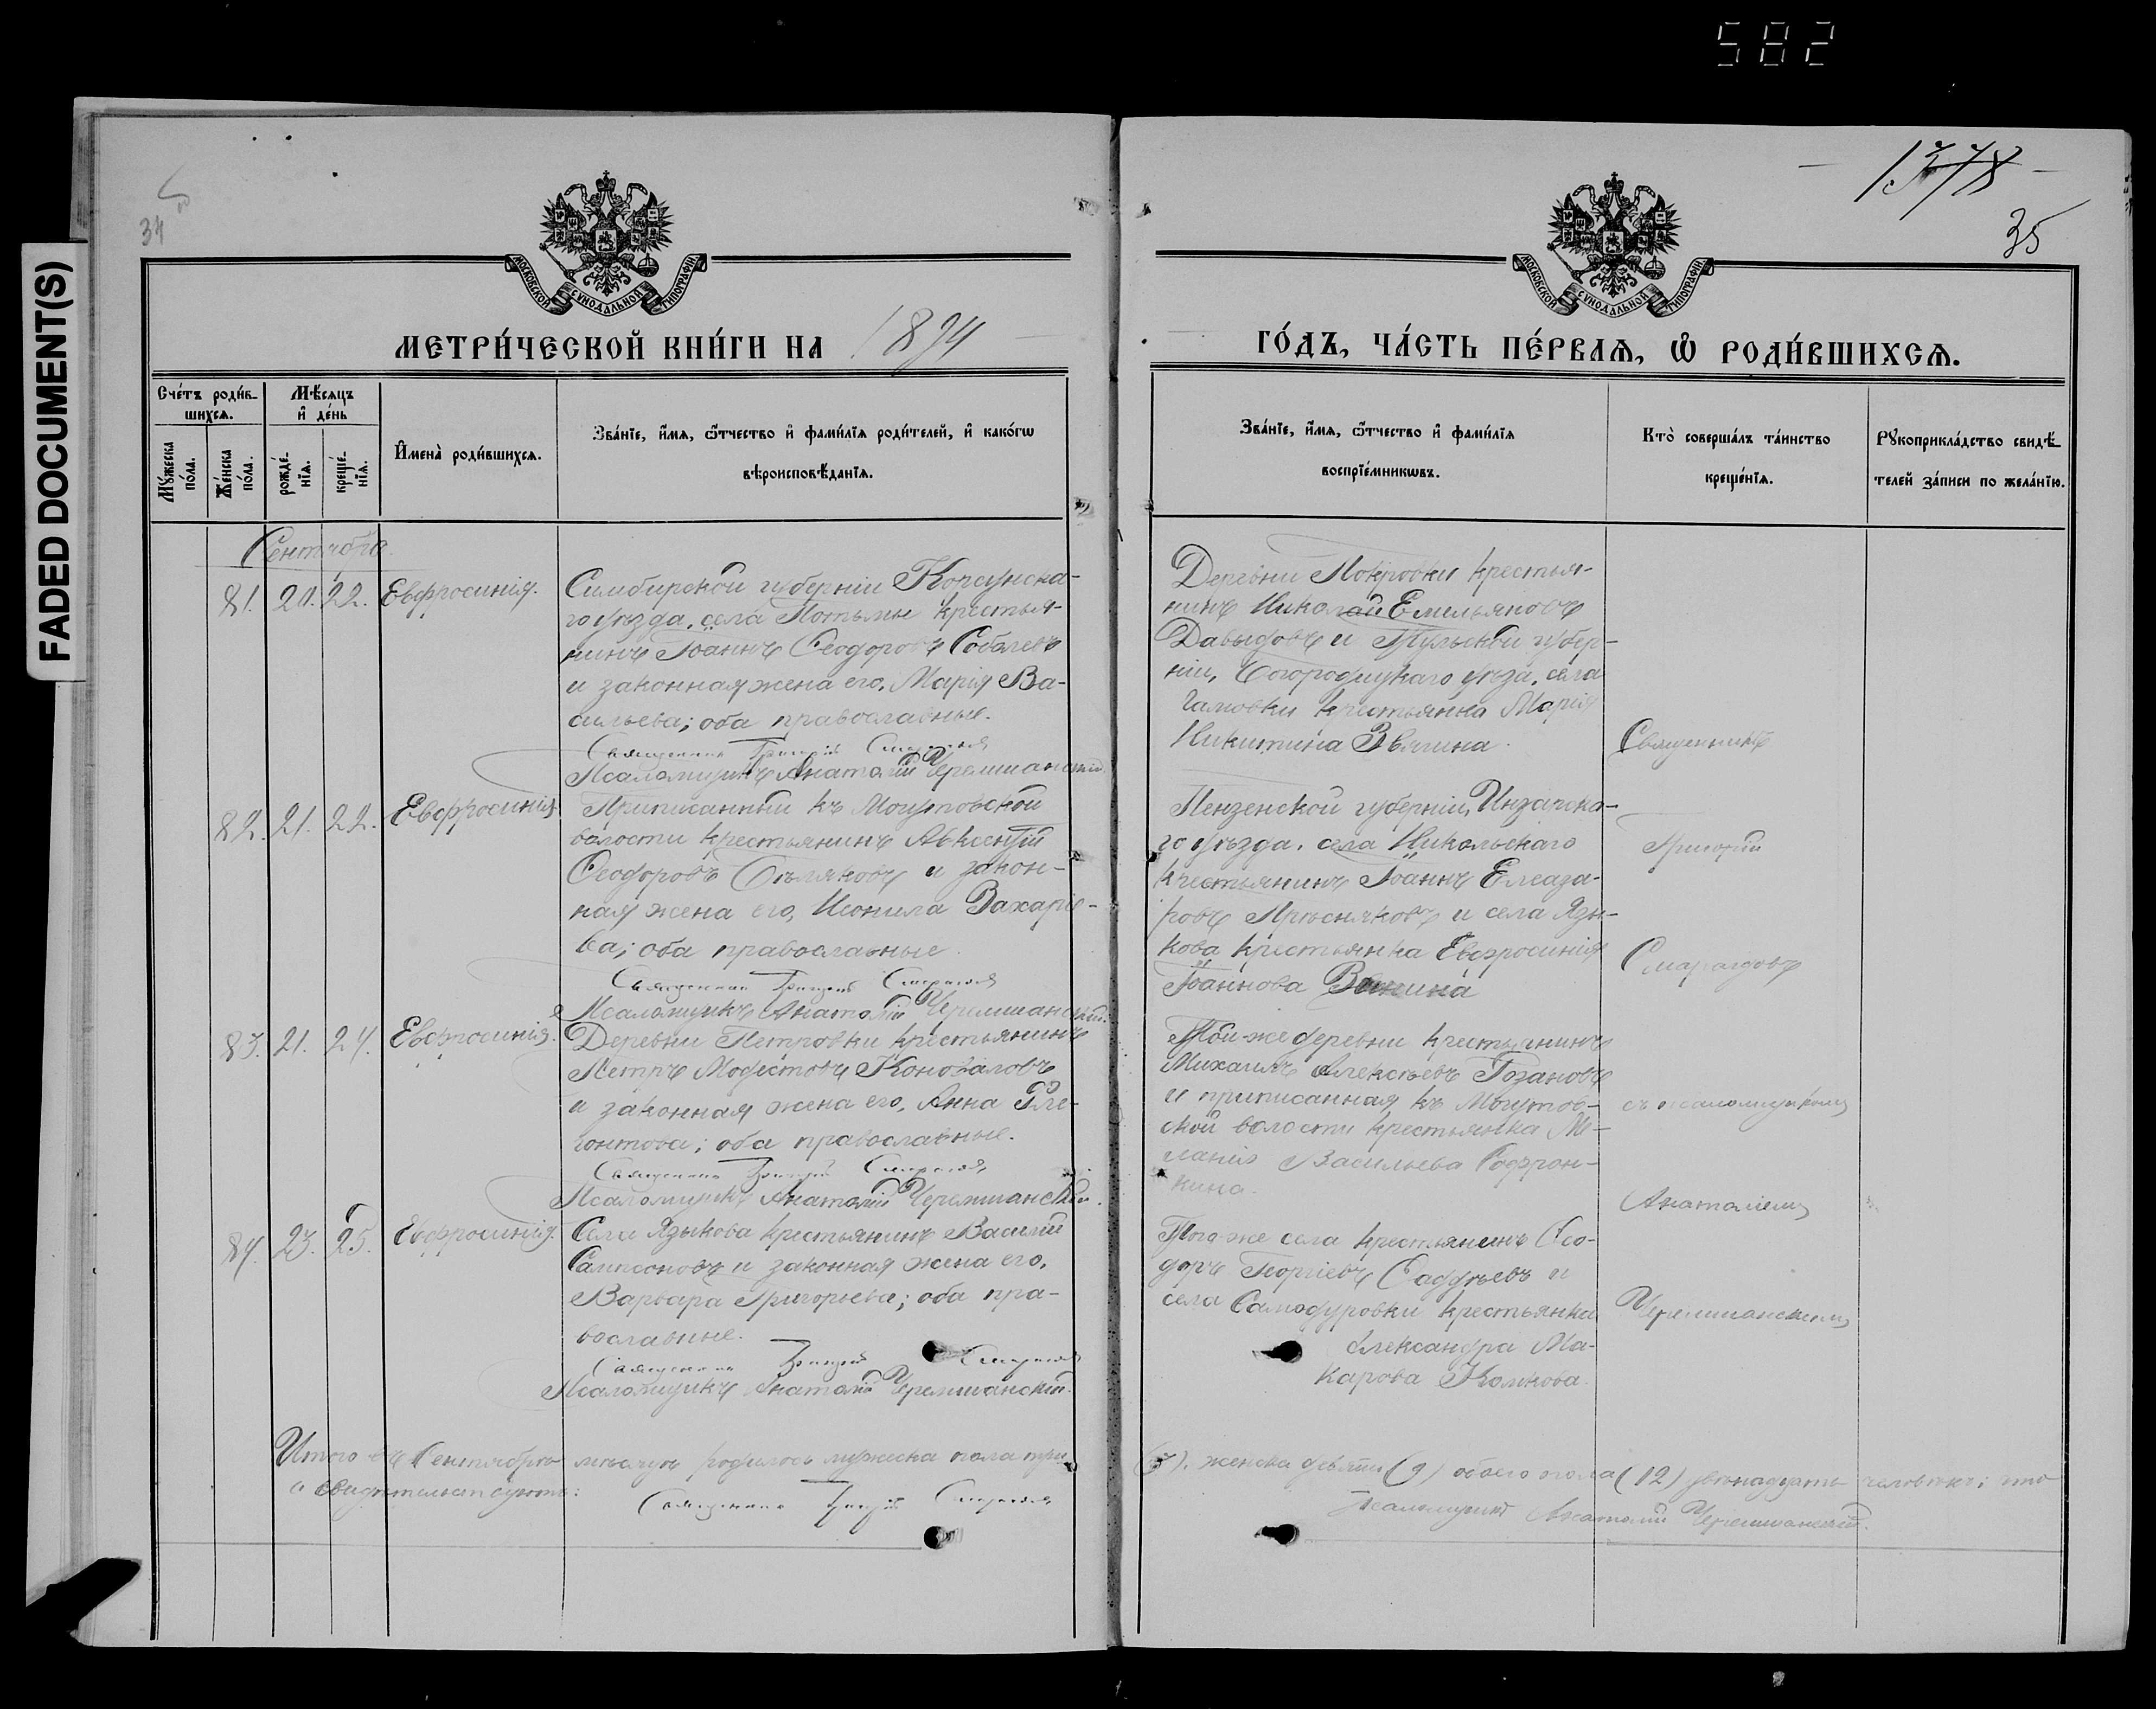 582
FADED DOCUMENT(S)
34
1378
35
МОСКОВСКОЙ СѴНОДАЛЬНОЙ ТИПОГРАФІИ
МОСКОВСКОЙ СѴНОДАЛЬНОЙ ТИПОГРАФІИ
МЕТРИ́ЧЕСКОЙ КНИ́ГИ НА 1894
ГО́ДЪ, ЧА́СТЬ ПЕ́РВАѦ, Ѽ РОДИ́ВШИХСѦ.
Сче́тъ роди́в-
шихсѧ.
Мѣ́сѧцъ
и҆ де́нь
Мꙋ́жеска
по́ла.
Же́нска
по́ла.
рожде́-
нїѧ.
креще́-
нїѧ.
И҆мена̀ роди́вшихсѧ.
Зва́нїе, и҆́мѧ, ѻ҆́тчество и҆ фами́лїѧ роди́телей, и҆ како́гѡ
вѣроисповѣ́данїѧ.
Зва́нїе, и҆́мѧ, ѻ҆́тчество и҆ фами́лїѧ
воспрїе́мникѡвъ.
Кто̀ соверша́лъ та́инство
креще́нїѧ.
Рꙋкоприкла́дство свидѣ́-
телей за́писи по жела́нїю.
Сентября
81. 20. 22. Евфросинія.
Симбирской губерніи Корсунска-
го уѣзда, села Потьмы крестья-
нинъ Іоаннъ Ѳеодоровъ Соболевъ
и законная жена его, Марія Ва-
сильева; оба православные.
Священникъ Григорій Смарагдовъ
Псаломщикъ Анатолій Черемшанскій
Деревни Покровки крестья-
нинъ Николай Емельяновъ
Давыдовъ и Тульской губер-
ніи, Богородицкаго уѣзда, села
крестьянка Марія
Никитина Звягина.
82. 21. 22. Евфросинія
Приписанный къ Могутовской
волости крестьянинъ Авксентій
Ѳеодоровъ Бѣляковъ и закон-
ная жена его, Неонила Захаріе-
ва; оба православные.
Священникъ Григорій Смарагдовъ
Псаломщикъ Анатолій Черемшанскій.
Пензенской губерніи, Инсарска-
го уѣзда, села Никольскаго
крестьянинъ Іоаннъ Елеаза-
ровъ Прѣсняковъ и села Язы-
кова крестьянка Евфросинія
Іоаннова
83. 21. 24. Евфросинія.
Деревни Петровки крестьянинъ
Петръ Модестовъ Коноваловъ
и законная жена его, Анна Фле-
гонтова; оба православные.
Священникъ Григорій Смарагдовъ
Псаломщикъ Анатолій Черемшанскій.
Той-же деревни крестьянинъ
Михаилъ Алексѣевъ Розановъ
и приписанная къ Могутов-
ской волости крестьянка Ме-
ланія Васильева Софрон-
кина.
84. 23. 25. Евфросинія.
Села Языкова крестьянинъ Василій
Сампсоновъ и законная жена его,
Варвара Григорьева; оба пра-
вославные.
Священникъ Григорій Смарагдовъ
Псаломщикъ Анатолій Черемшанскій.
Того-же села крестьянинъ Ѳео-
доръ Георгіевъ Ѳаддѣевъ и
села Самодуровки крестьянка
Александра Ма-
карова
Священникъ
Григорій
Смарагдовъ
съ псаломщикомъ
Анатоліемъ
Черемшанскимъ
Итого въ Сентябрѣ мѣсяцѣ родилось мужеска пола три
(3), женска девять (9) обоего пола (12) двѣнадцать человѣкъ; что
и свидѣтельствуютъ: Священникъ Григорій Смарагдовъ
Псаломщикъ Анатолій Черемшанскій.